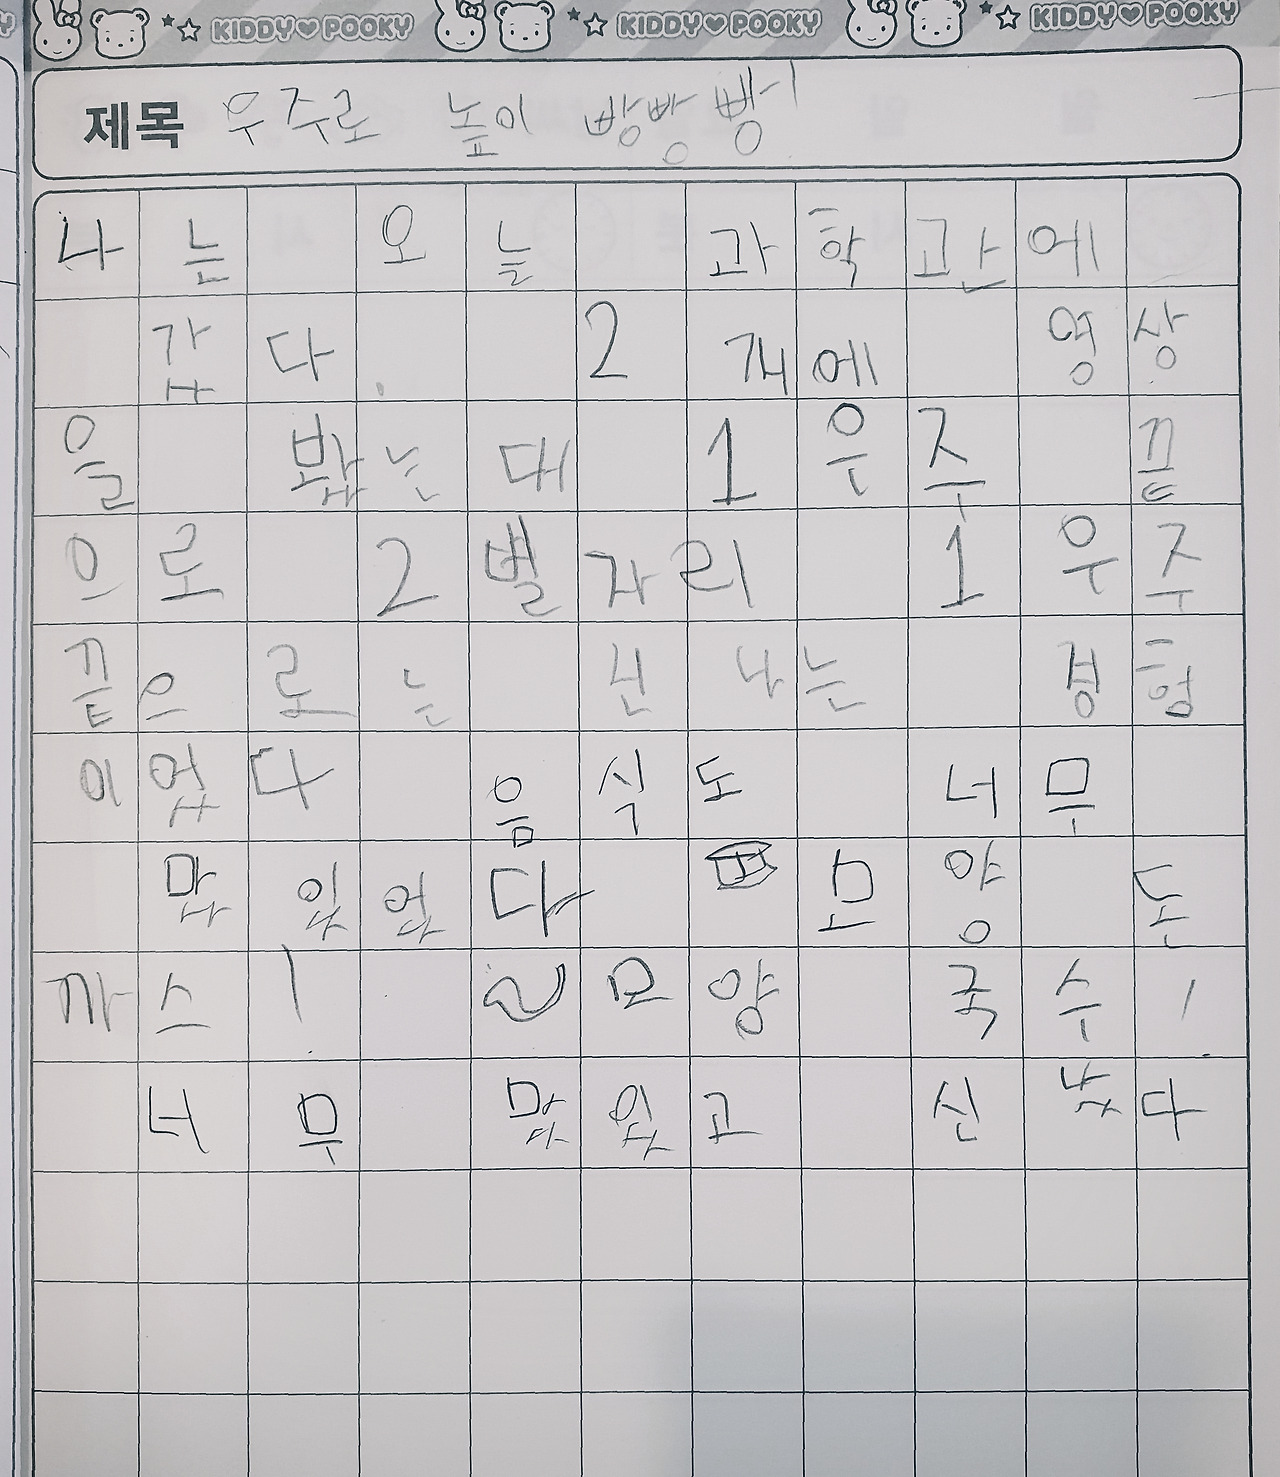 KIDDY♥POOKY KIDDY♥POOKY KIDDY♥POOKY
제목 우주로 높이 빵빵 빵!
나는 오늘 과학관에
갔다. 2개에 영상
을 봤는대 1우주 끝
으로 2별자리 1우주
끝으로는 신나는 경험
이었다 음식도 너무
맜있었다 모양 돈
까스! 모양 국수!
너무 맜있고 신났다